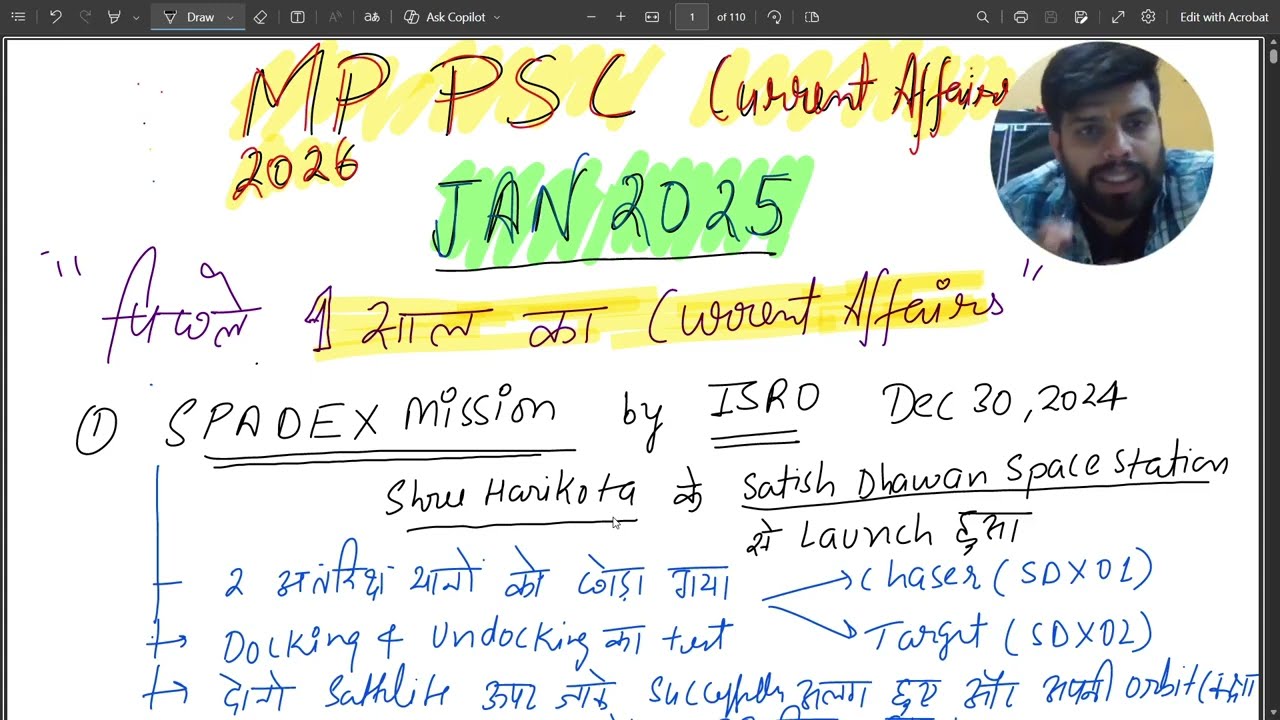 Draw
Ask Copilot
1 of 110
Edit with Acrobat
MP PSC Current Affairs
2026
JAN 2025
"पिछले 1 साल का Current Affairs"
① SPADEX Mission by ISRO Dec 30, 2024
Shree Harikota के Satish Dhawan Space Station
से Launch हुआ
2 अंतरिक्ष यानो को जोड़ा गया
Chaser (SDX01)
Docking & Undocking का test
Target (SDX02)
दोनो ऊपर जाके अलग हुए और अपनी orbit (कक्षा